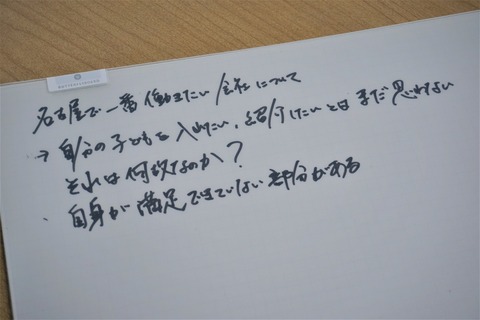 名古屋で一番働きたい会社について
→ 自分の子どもを入れたい、紹介したいとはまだ思わない
それは何故なのか?
・自身が満足できていない部分がある